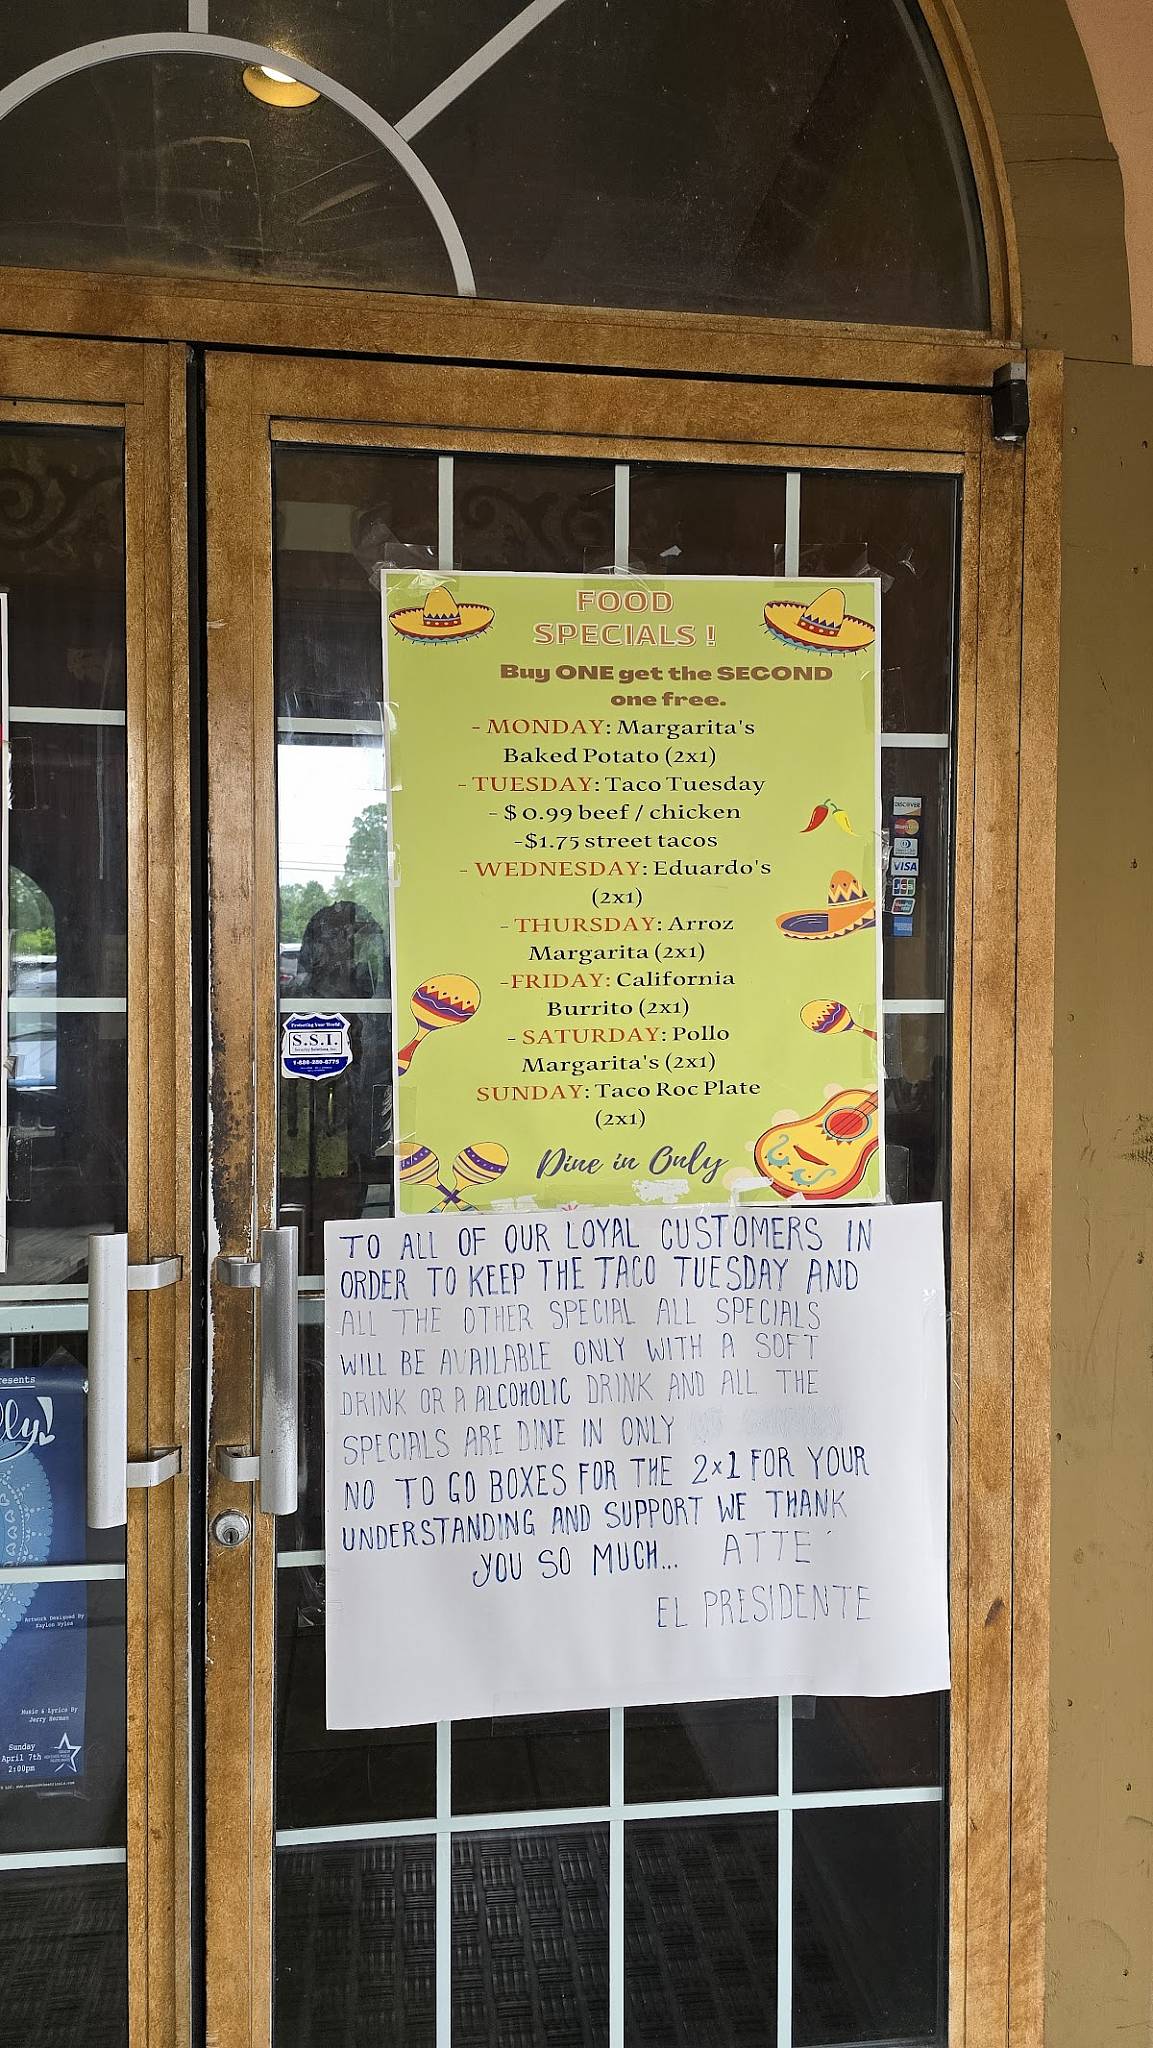 FOOD
SPECIALS !
Buy ONE get the SECOND
one free.
- MONDAY: Margarita's
Baked Potato (2x1)
- TUESDAY: Taco Tuesday
- $ 0.99 beef / chicken
-$1.75 street tacos
- WEDNESDAY: Eduardo's
(2x1)
- THURSDAY: Arroz
Margarita (2x1)
-FRIDAY: California
Burrito (2x1)
- SATURDAY: Pollo
Margarita's (2x1)
SUNDAY: Taco Roc Plate
(2x1)
Dine in Only
DISCOVER
VISA
JCB
Protecting Your World
S.S.I.
TO ALL OF OUR LOYAL CUSTOMERS IN
ORDER TO KEEP THE TACO TUESDAY AND
ALL THE OTHER SPECIAL ALL SPECIALS
WILL BE AVAILABLE ONLY WITH A SOFT
DRINK OR A ALCOHOLIC DRINK AND ALL THE
SPECIALS ARE DINE IN ONLY
NO TO GO BOXES FOR THE 2x1 FOR YOUR
UNDERSTANDING AND SUPPORT WE THANK
YOU SO MUCH... ATTE
EL PRESIDENTE
esents
lly!
Artwork Designed By
Music & Lyrics By
Jerry Herman
Sunday
April 7th
2:00pm